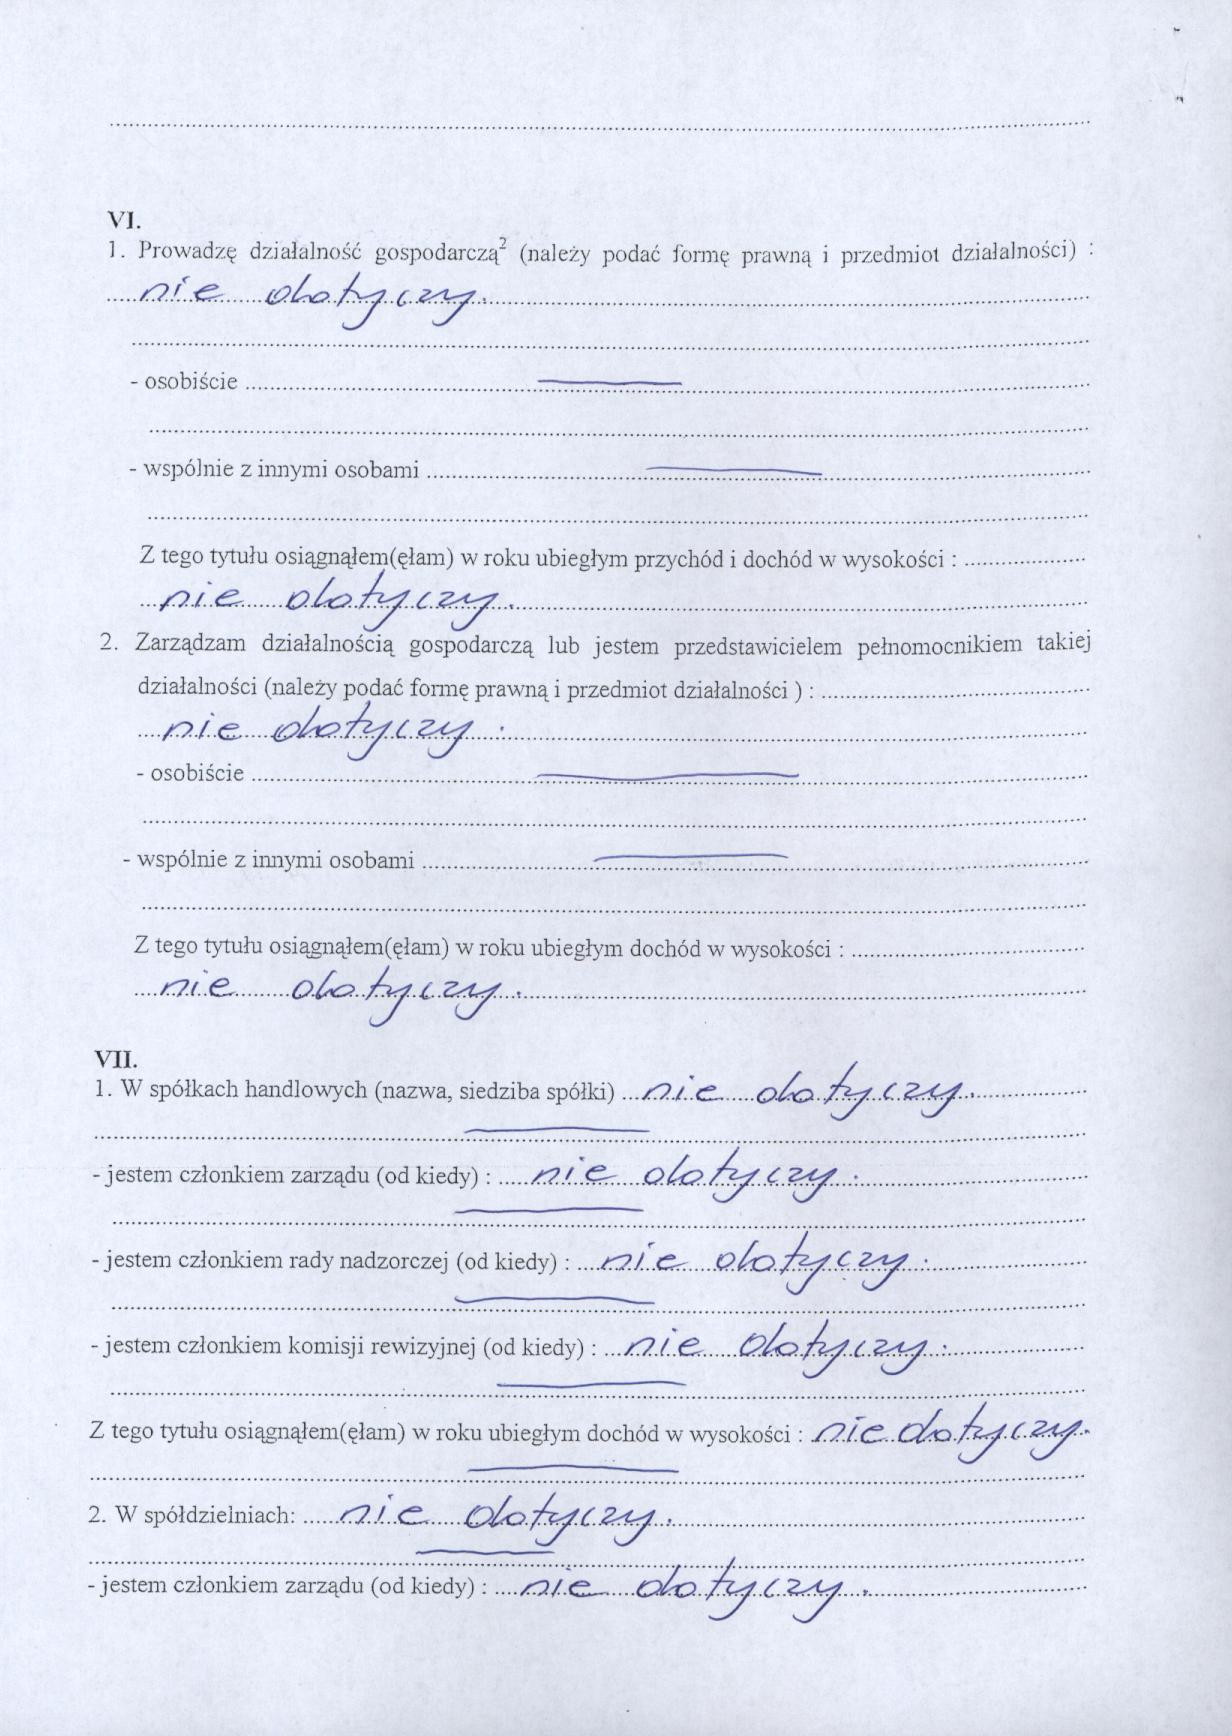 VI.
1. Prowadzę działalność gospodarczą² (należy podać formę prawną i przedmiot działalności) :
nie dotyczy.
- osobiście
- wspólnie z innymi osobami
Z tego tytułu osiągnąłem(ęłam) w roku ubiegłym przychód i dochód w wysokości :
nie dotyczy.
2. Zarządzam działalnością gospodarczą lub jestem przedstawicielem pełnomocnikiem takiej
działalności (należy podać formę prawną i przedmiot działalności ) :
nie dotyczy.
- osobiście
- wspólnie z innymi osobami
Z tego tytułu osiągnąłem(ęłam) w roku ubiegłym dochód w wysokości :
nie dotyczy.
VII.
1. W spółkach handlowych (nazwa, siedziba spółki) nie dotyczy.
- jestem członkiem zarządu (od kiedy) : nie dotyczy.
- jestem członkiem rady nadzorczej (od kiedy) : nie dotyczy.
- jestem członkiem komisji rewizyjnej (od kiedy) : nie dotyczy.
Z tego tytułu osiągnąłem(ęłam) w roku ubiegłym dochód w wysokości : nie dotyczy.
2. W spółdzielniach: nie dotyczy.
- jestem członkiem zarządu (od kiedy) : nie dotyczy.